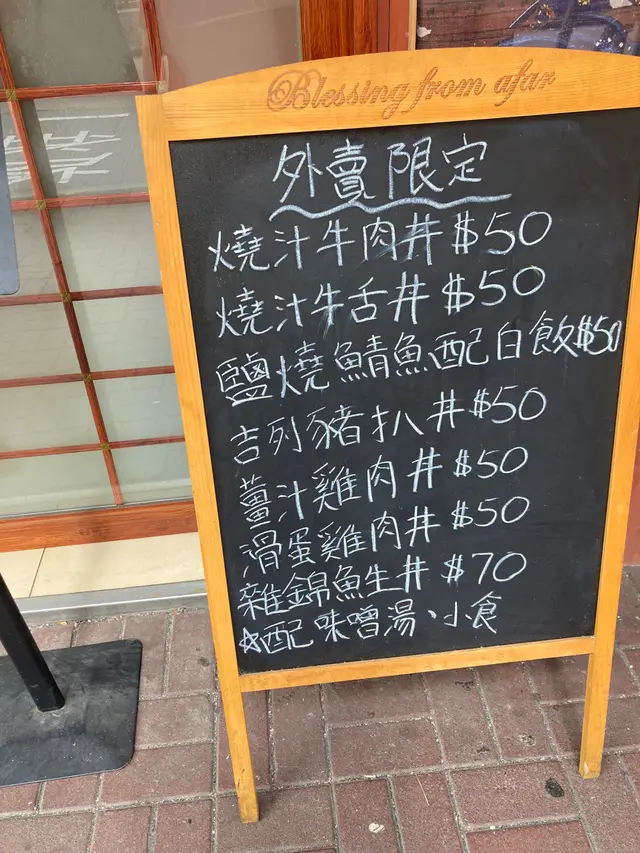 Blessing from afar
外賣限定
燒汁牛肉丼$50
燒汁牛舌丼$50
鹽燒鯖魚配白飲$50
吉列豬扒丼$50
薑汁雞肉丼$50
滑蛋雞肉丼$50
雜錦魚生丼$70
☆配味噌湯、小食